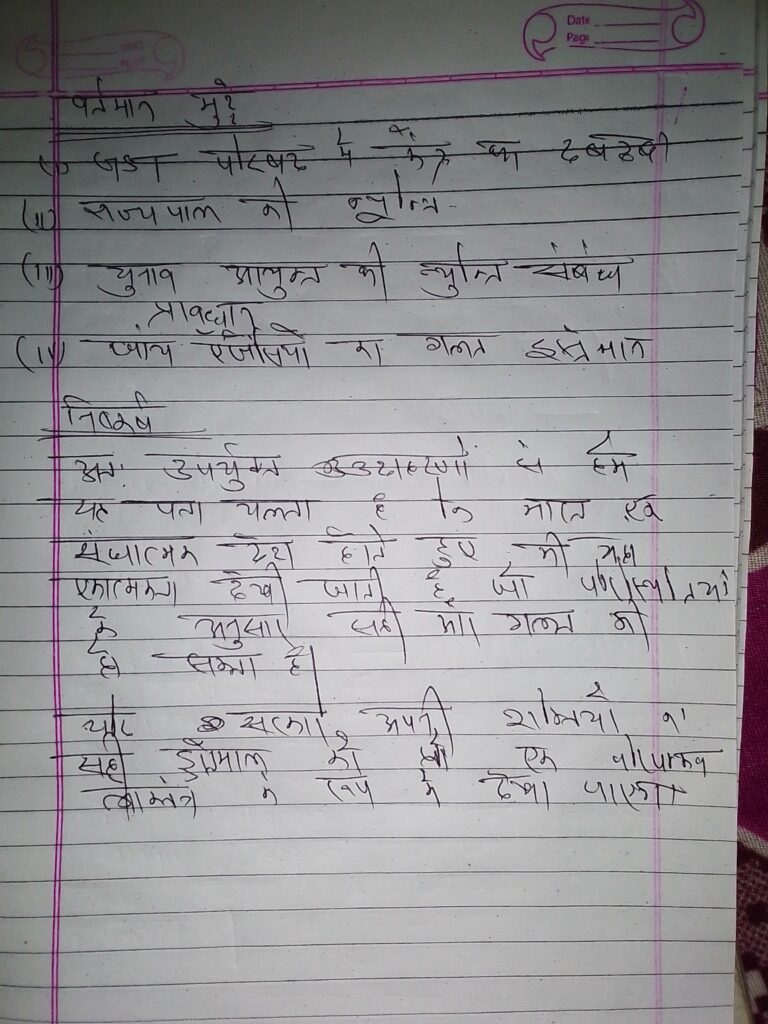 Date
Page
वर्तमान मुद्दे
(i) परिषद में केंद्र का दबदबा
(ii) राज्यपाल की न्युक्ति
(iii) चुनाव आयुक्त की न्युक्ति संबंध
प्रावधान
(iv) जांच एजेंसियों का गलत इस्तेमाल
निष्कर्ष
अतः उपर्युक्त उदाहरणों से हमे
यह पता चलता है कि भारत एक
संघात्मक देश होते हुए भी कुछ
एकात्मकता देखी जाती है जो परिस्थितियों
के अनुसार सही और गलत भी
हो सकता है।
यदि सरकार अपनी शक्तियों का
सही इस्तेमाल करे तो एक
लोकतंत्र के रूप में देखा जाएगा